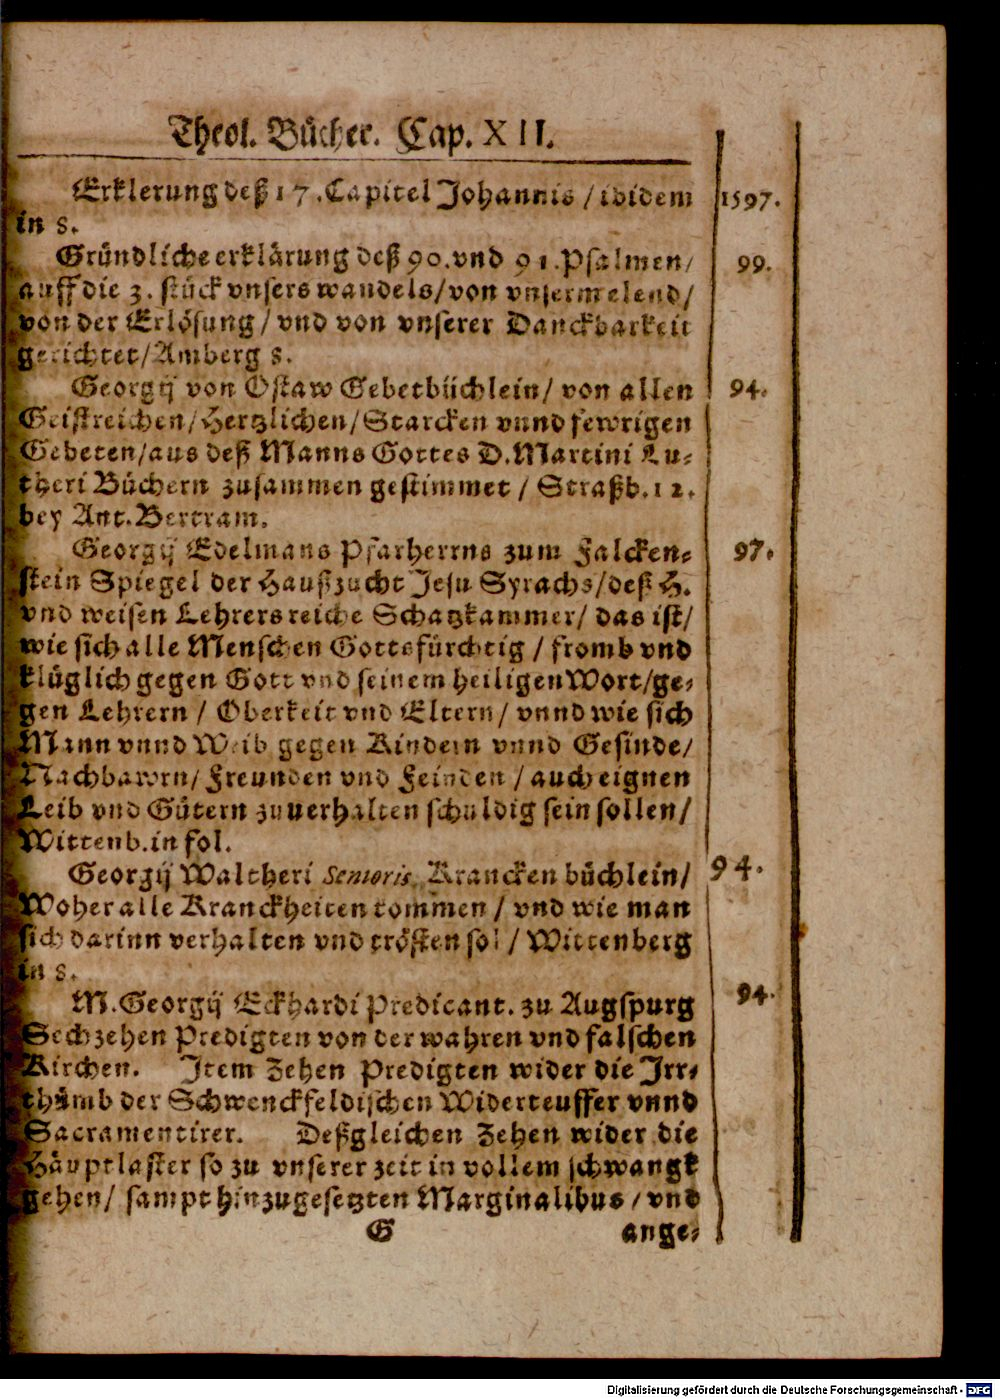 Theol. Bücher. Cap. XII.
Erklerung deß 17. Capitel Johannis / ibidem 1597.
in 8.
Gründliche erklärung deß 90. vnd 91. Psalmen / 99.
auff die 3. stück vnsers wandels / von vnserm elend /
von der Erlösung / vnd von vnserer Danckbarkeit
gerichtet / Amberg 8.
Georgij von Ostaw Gebetbüchlein / von allen 94.
Geistreichen / Hertzlichen / Starcken vnnd fewrigen
Gebeten / aus deß Manns Gottes D. Martini Lu⸗
theri Büchern zusammen gestimmet / Straßb. 12.
bey Ant. Bertram.
Georgij Edelmans Pfarherrns zum Falcken⸗ 97.
stein Spiegel der Haußzucht Jesu Syrachs / deß H.
vnd weisen Lehrers reiche Schatzkammer / das ist /
wie sich alle Menschen Gottsfürchtig / fromb vnd
klüglich gegen Gott vnd seinem heiligen Wort / ge⸗
gen Lehrern / Oberkeit vnd Eltern / vnnd wie sich
Mann vnnd Weib gegen Kindern vnnd Gesinde /
Nachbawrn / Freunden vnd Feinden / auch eignen
Leib vnd Gütern zuuerhalten schuldig sein sollen /
Wittenb. in fol.
Georgij Waltheri Senioris, Krancken büchlein / 94.
Woher alle Kranckheiten kommen / vnd wie man
sich darinn verhalten vnd trösten sol / Wittenberg
in 8.
M. Georgij Eckhardi Predicant. zu Augspurg 94.
Sechzehen Predigten von der wahren vnd falschen
Kirchen. Item Zehen Predigten wider die Irr⸗
thümb der Schwenckfeldischen Widerteuffer vnnd
Sacramentirer. Deßgleichen Zehen wider die
Häuptlaster so zu vnserer zeit in vollem schwangk
gehen / sampt hinzugesetzten Marginalibus / vnd
G ange⸗
Digitalisierung gefördert durch die Deutsche Forschungsgemeinschaft - DFG